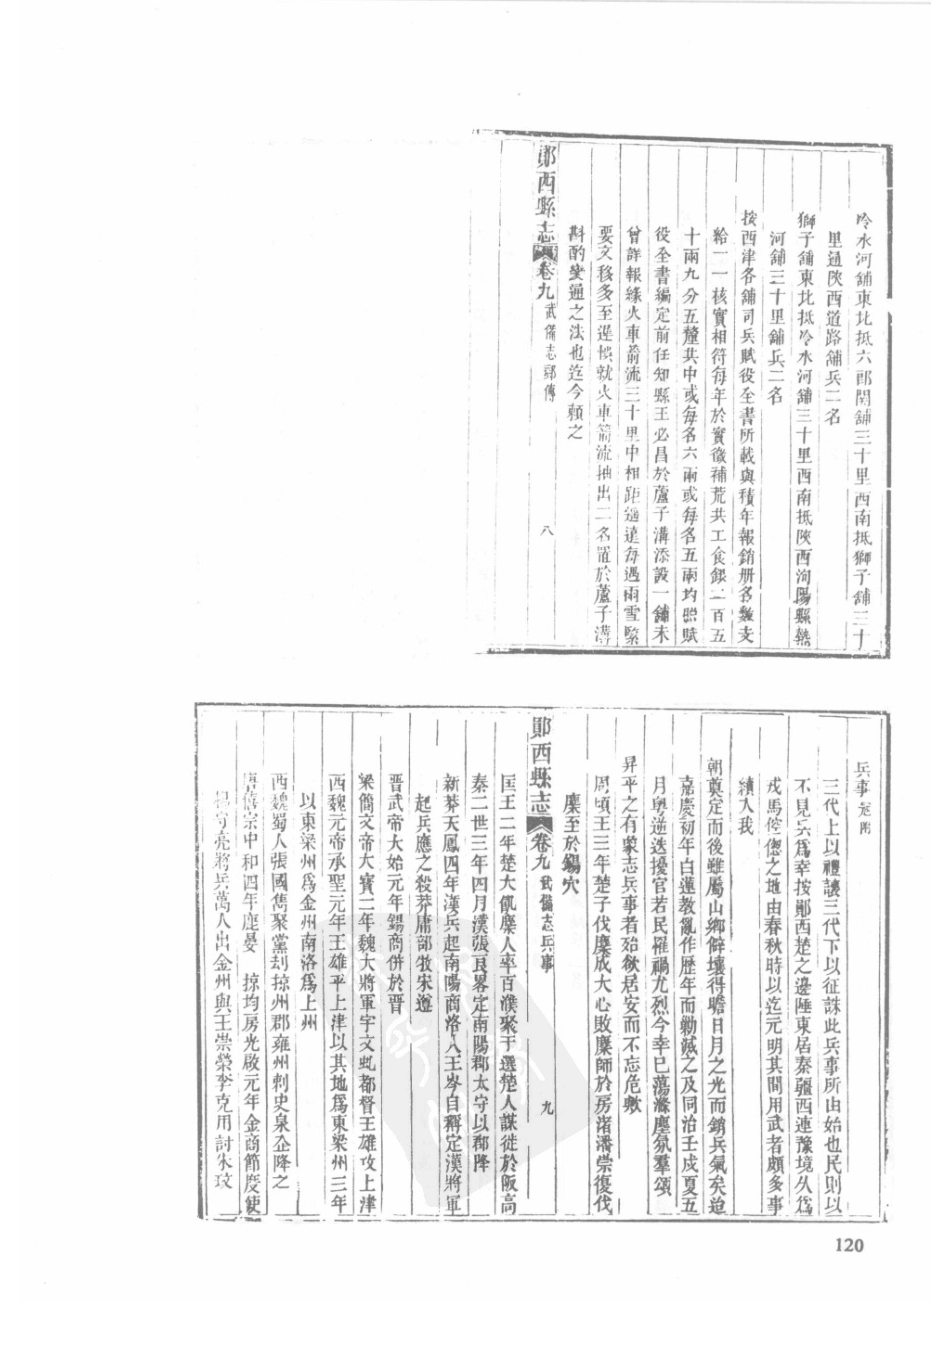 冷水河舖東北抵六郎関舖三十里西南抵獅子舖三十
里通陝西道路舖兵二名
獅子舖東北抵冷水河舖三十里西南抵陝西洵陽縣蘂
河舖三十里舖兵二名
按西津各舖司兵賦役全書所載與積年報銷册名數支
給一一核實相符每年於實徵補荒共工食銀二百五
十兩九分五釐共中或每名六兩或每名五兩均照賦
役全書編定前任知縣王必昌於蘆子溝添設一舖未
曾詳報緣火車箭流三十里中相距遥遠每遇雨雪緊
要文移多至遲悞就火車箭流抽出二名置於蘆子溝
斟酌變通之法也迄今賴之
鄖西縣志
卷九
武備志郵傳
八
兵事
三代上以禮讓三代下以征誅此兵事所由始也民則以
不見兵爲幸按鄖西楚之邊陲東居秦疆西連豫境久爲
戎馬倥偬之地由春秋時以迄元明其間用武者頗多事
績入我
朝奠定而後雖屬山鄉僻壤得瞻日月之光而銷兵氣矣迨
嘉慶初年白蓮教亂作歷年而勦滅之及同治壬戌夏五
月輿逆迭擾官若民罹禍尤烈今幸已蕩滌塵氛羣頌
昇平之有象志兵事者殆欲居安而不忘危歟
周頃王三年楚子伐麇成大心敗麇師於房渚潘崇復伐
麇至於錫穴
鄖西縣志
卷九
武備志兵事
九
匡王二年楚大飢麇人率百濮聚于選楚人謀徙於阪高
秦二世三年四月漢張良畧定南陽郡太守以郡降
新莽天鳳四年漢兵起南陽商洛人王岑自稱定漢將軍
起兵應之殺莽庸部牧宋遵
晉武帝大始元年錫商併於晉
梁簡文帝大寶二年魏大將軍宇文虬都督王雄攻上津
西魏元帝承聖元年王雄平上津以其地爲東梁州三年
以東梁州爲金州南洛爲上州
西魏蜀人張國雋聚黨刦掠州郡雍州刺史泉仚降之
唐僖宗中和四年鹿晏 掠均房光啟元年金商節度使
楊守亮將兵萬人出金州與王崇榮李克用討朱玫
120